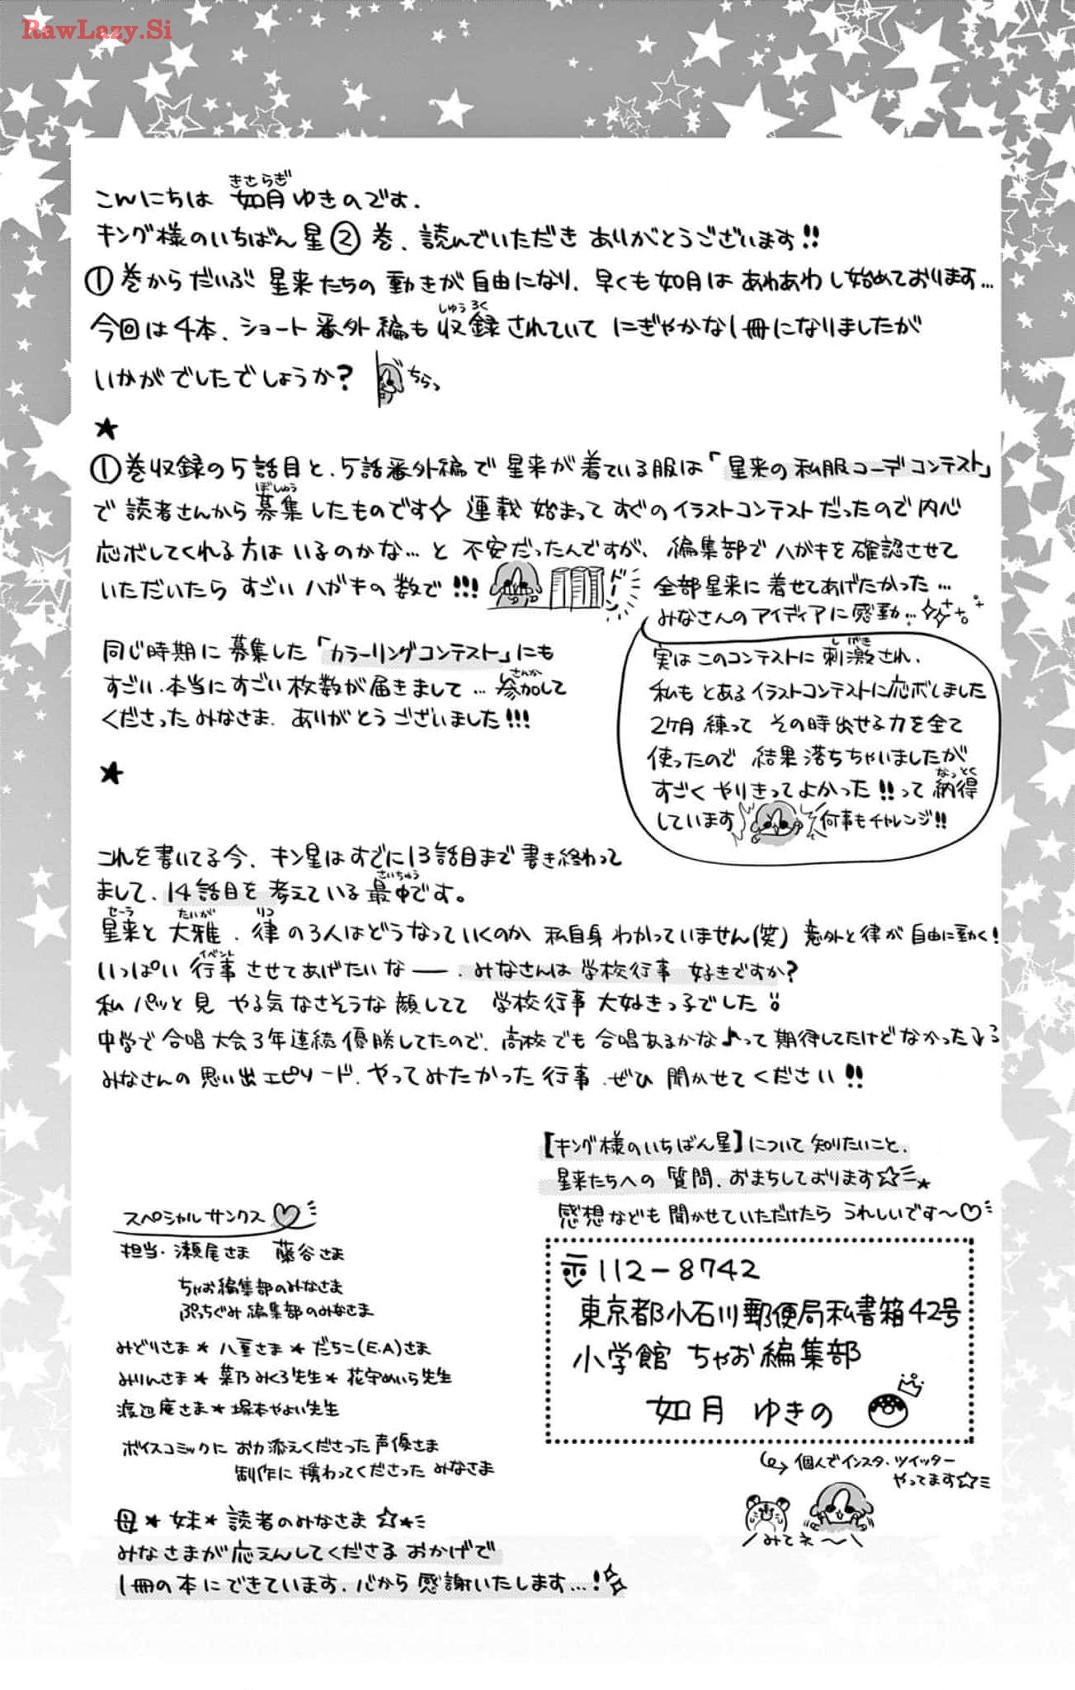 RawLazy.Si
こんにちは 如月ゆきのです.
きさらぎ
キング様のいちばん星②巻、読んでいただき ありがとうございます!!
①巻からだいぶ 星来たちの 動きが自由になり、早くも如月は あわあわし始めております…
今回は4本、ショート番外編も収録されていて にぎやかな1冊になりましたが
しゅうろく
いかがでしたでしょうか?
ちらっ
★
①巻収録の5話目と、5話番外編で 星来が着ている服は「星来の私服コーデコンテスト」
で 読者さんから募集したものです 連載 始まって すぐのイラストコンテストだったので内心
ぼしゅう
応ボしてくれる方は いるのかな…と 不安だったんですが、編集部でハガキを確認させて
いただいたら すごい ハガキの数で!!!
ドーン
全部星来に着せてあげたかった…
みなさんのアイディアに感動…
同じ時期に募集した「カラーリングコンテスト」にも
すごい、本当にすごい枚数が届きまして…参加して
さんか
くださったみなさま、ありがとうございました!!!
実はこのコンテストに刺激され、
しげき
私もとあるイラストコンテストに応ボしました
2ケ月練って その時出せる力を全て
使ったので 結果落ちちゃいましたが
すごく やりきってよかった!!って納得
なっとく
しています
何事もチャレンジ!!
★
これを書いてる今、キン星はすでに13話目まで書き終わって
まして、14話目を考えている最中です。
さいちゅう
星来と 大雅、律の3人はどうなっていくのか 私自身わかっていません(笑) 意外と律が自由に動く!
セーラ たいが りつ
いっぱい 行事させてあげたいなー、みなさんは 学校行事 好きですか?
イベント
私 パッと見 やる気なさそうな顔してて 学校行事 大好きっ子でした!!
中学で合唱大会3年連続優勝してたので、高校でも合唱あるかな♪って期待してたけどなかった
みなさんの思い出エピソード、やってみたかった行事、ぜひ聞かせてください!!
【キング様のいちばん星】について知りたいこと、
星来たちへの質問、おまちしております☆
感想なども聞かせていただけたら うれしいです〜♡
〒112-8742
東京都小石川郵便局私書箱42号
小学館 ちゃお編集部
如月 ゆきの
個人でインスタ・ツイッター
やってます☆
みてネ〜
スペシャルサンクス♡
担当・瀬尾さま 藤谷さま
ちゃお編集部のみなさま
ぷっちぐみ編集部のみなさま
みどりさま★八重さま★だちこ(E.A)さま
みりんさま★菜乃みくろ先生★花守めいら先生
渡辺庵さま★塚本やよい先生
ボイスコミックに お力添えくださった声優さま
制作に携わってくださったみなさま
母★妹★読者のみなさま☆
みなさまが応えんしてくださるおかげで
1冊の本にできています、心から感謝いたします…!